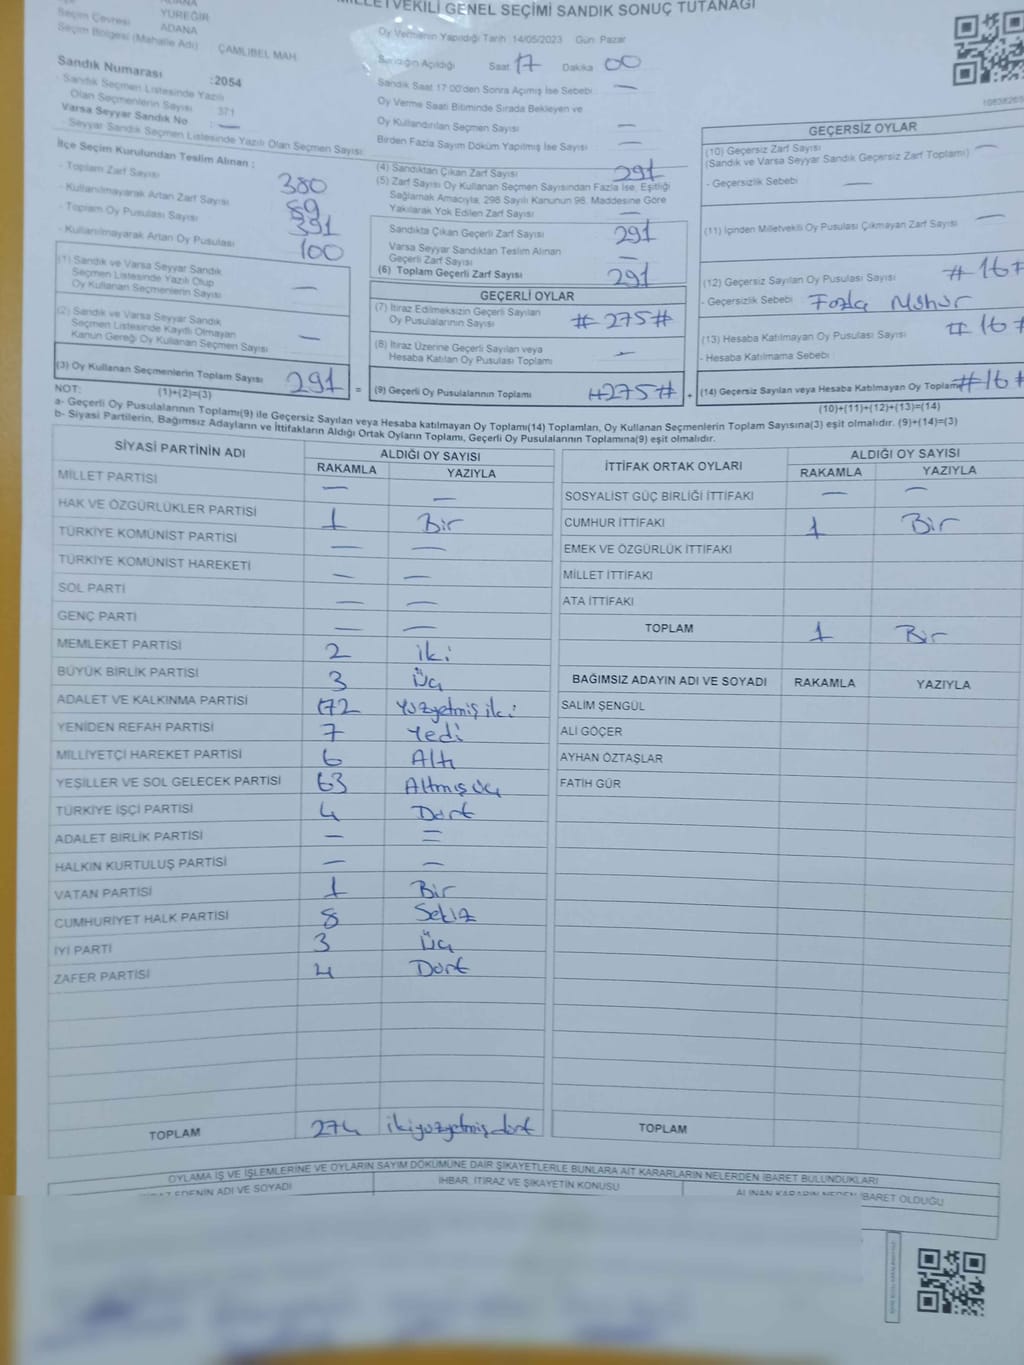 MİLLETVEKİLİ GENEL SEÇİMİ SANDIK SONUÇ TUTANAĞI
ADANA
YÜREĞİR
Seçim Çevresi ADANA
Seçim Bölgesi (Mahalle Adı) ÇAMLIBEL MAH
Sandık Numarası :2054
- Sandık Seçmen Listesinde Yazılı
Olan Seçmenlerin Sayısı 371
Varsa Seyyar Sandık No : —
- Seyyar Sandık Seçmen Listesinde Yazılı Olan Seçmen Sayısı:
İlçe Seçim Kurulundan Teslim Alınan :
- Toplam Zarf Sayısı 380
- Kullanılmayarak Artan Zarf Sayısı 89
- Toplam Oy Pusulası Sayısı 391
- Kullanılmayarak Artan Oy Pusulası 100
(1) Sandık ve Varsa Seyyar Sandık
Seçmen Listesinde Yazılı Olup
Oy Kullanan Seçmenlerin Sayısı —
(2) Sandık ve Varsa Seyyar Sandık
Seçmen Listesinde Kayıtlı Olmayan
Kanun Gereği Oy Kullanan Seçmen Sayısı —
(3) Oy Kullanan Seçmenlerin Toplam Sayısı 291
(1)+(2)=(3)
Oy Vermenin Yapıldığı Tarih :14/05/2023 Gün: Pazar
Sandığın Açıldığı Saat 17 Dakika 00
Sandık Saat 17:00'den Sonra Açılmış İse Sebebi —
Oy Verme Saati Bitiminde Sırada Bekleyen ve
Oy Kullandırılan Seçmen Sayısı —
Birden Fazla Sayım Döküm Yapılmış İse Sayısı —
(4) Sandıktan Çıkan Zarf Sayısı 291
(5) Zarf Sayısı Oy Kullanan Seçmen Sayısından Fazla İse, Eşitliği
Sağlamak Amacıyla, 298 Sayılı Kanunun 98. Maddesine Göre
Yakılarak Yok Edilen Zarf Sayısı —
Sandıkta Çıkan Geçerli Zarf Sayısı 291
Varsa Seyyar Sandıktan Teslim Alınan
Geçerli Zarf Sayısı —
(6) Toplam Geçerli Zarf Sayısı 291
GEÇERLİ OYLAR
(7) İtiraz Edilmeksizin Geçerli Sayılan
Oy Pusulalarının Sayısı #275#
(8) İtiraz Üzerine Geçerli Sayılan veya
Hesaba Katılan Oy Pusulası Toplamı —
= (9) Geçerli Oy Pusulalarının Toplamı #275# +
GEÇERSİZ OYLAR
(10) Geçersiz Zarf Sayısı —
(Sandık ve Varsa Seyyar Sandık Geçersiz Zarf Toplamı)
- Geçersizlik Sebebi —
(11) İçinden Milletvekili Oy Pusulası Çıkmayan Zarf Sayısı —
(12) Geçersiz Sayılan Oy Pusulası Sayısı #16#
- Geçersizlik Sebebi Fazla Mühür
(13) Hesaba Katılmayan Oy Pusulası Sayısı #16#
- Hesaba Katılmama Sebebi
(14) Geçersiz Sayılan veya Hesaba Katılmayan Oy Toplamı #16#
(10)+(11)+(12)+(13)=(14)
NOT:
a- Geçerli Oy Pusulalarının Toplamı(9) ile Geçersiz Sayılan veya Hesaba katılmayan Oy Toplamı(14) Toplamları, Oy Kullanan Seçmenlerin Toplam Sayısına(3) eşit olmalıdır. (9)+(14)=(3)
b- Siyasi Partilerin, Bağımsız Adayların ve İttifakların Aldığı Ortak Oyların Toplamı, Geçerli Oy Pusulalarının Toplamına(9) eşit olmalıdır.
SİYASİ PARTİNİN ADI ALDIĞI OY SAYISI
RAKAMLA YAZIYLA
MİLLET PARTİSİ — —
HAK VE ÖZGÜRLÜKLER PARTİSİ 1 Bir
TÜRKİYE KOMÜNİST PARTİSİ — —
TÜRKİYE KOMÜNİST HAREKETİ — —
SOL PARTİ — —
GENÇ PARTİ — —
MEMLEKET PARTİSİ 2 iki
BÜYÜK BİRLİK PARTİSİ 3 Üç
ADALET VE KALKINMA PARTİSİ 172 Yüzyetmiş iki
YENİDEN REFAH PARTİSİ 7 Yedi
MİLLİYETÇİ HAREKET PARTİSİ 6 Altı
YEŞİLLER VE SOL GELECEK PARTİSİ 63 Altmış üç
TÜRKİYE İŞÇİ PARTİSİ 4 Dört
ADALET BİRLİK PARTİSİ — =
HALKIN KURTULUŞ PARTİSİ — —
VATAN PARTİSİ 1 Bir
CUMHURİYET HALK PARTİSİ 8 Sekiz
İYİ PARTİ 3 Üç
ZAFER PARTİSİ 4 Dört
TOPLAM 274 ikiyüzyetmişdört
İTTİFAK ORTAK OYLARI ALDIĞI OY SAYISI
RAKAMLA YAZIYLA
SOSYALİST GÜÇ BİRLİĞİ İTTİFAKI — —
CUMHUR İTTİFAKI 1 Bir
EMEK VE ÖZGÜRLÜK İTTİFAKI
MİLLET İTTİFAKI
ATA İTTİFAKI
TOPLAM 1 Bir
BAĞIMSIZ ADAYIN ADI VE SOYADI RAKAMLA YAZIYLA
SALİM ŞENGÜL
ALİ GÖÇER
AYHAN ÖZTAŞLAR
FATİH GÜR
TOPLAM
OYLAMA İŞ VE İŞLEMLERİNE VE OYLARIN SAYIM DÖKÜMÜNE DAİR ŞİKAYETLERLE BUNLARA AİT KARARLARIN NELERDEN İBARET BULUNDUKLARI
EDENİN ADI VE SOYADI İHBAR, İTİRAZ VE ŞİKAYETİN KONUSU ALINAN KARARIN NEDEN İBARET OLDUĞU